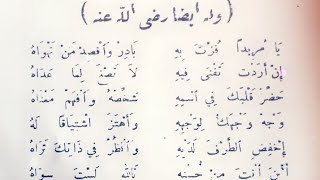 (وله أيضا رضي الله عنه)
يَا مُرِيداً فُزْتَ بِهِ بَادِرْ وَاقْصِدْ مَنْ تَهْوَاهُ
إِنْ أَرَدْتَ تَفْنَى فِيهِ لَا تَصْغَ لِمَا عَدَاهُ
حَضِّرْ قَلْبَكَ فِي اسْمِهِ شَخِّصْهُ وَافْهَمْ مَعْنَاهُ
وَجِّهْ وَجْهَكَ لِوَجْهِهِ وَاهْتَزَّ اشْتِيَاقًا لَهُ
إِخْفِضِ الطَّرْفَ لَدَيْهِ وَانْظُرْ فِي ذَاتِكَ تَرَاهُ
أَيْنَ أَنْتَ مِنْ حُسْنِهِ تَاللهِ لَسْتَ سِوَاهُ